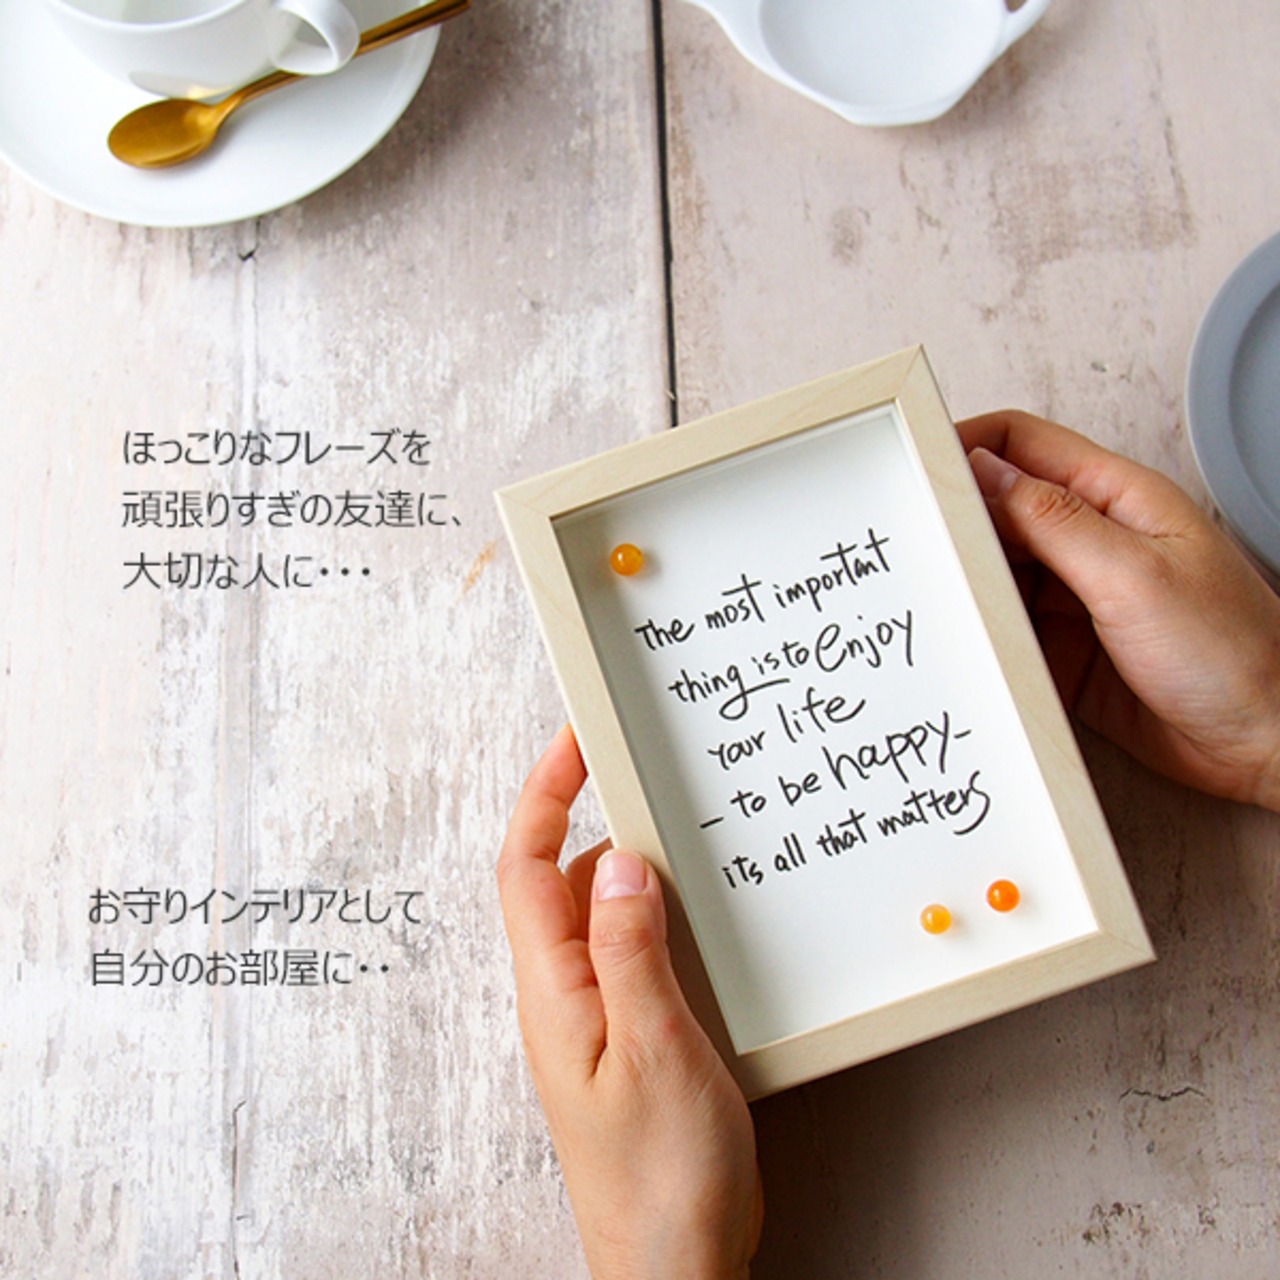 ほっこりなフレーズを
頑張りすぎの友達に、
大切な人に・・・
お守りインテリアとして
自分のお部屋に・・
The most important
thing is to enjoy
your life
- to be happy -
it's all that matters